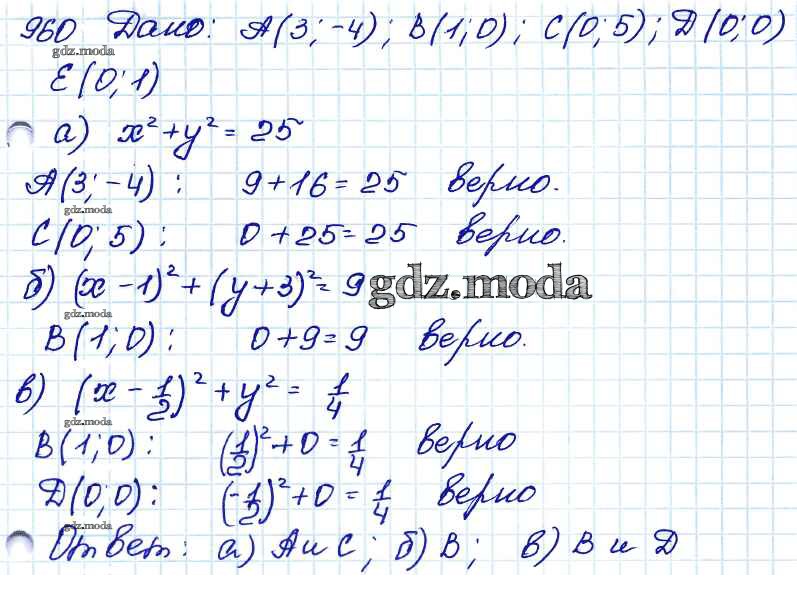 960 Дано: A(3;-4); B(1;0); C(0;5); Д(0;0)
gdz.moda
E(0;1)
а) x²+y²= 25
A(3;-4): 9+16=25 верно.
gdz.moda
C(0;5): 0+25=25 верно.
б) (x-1)²+(y+3)²=9 gdz.moda
gdz.moda
B(1;0): 0+9=9 верно.
в) (x-1/2)²+y²= 1/4
gdz.moda
B(1;0): (1/2)²+0=1/4 верно
Д(0;0): (-1/2)²+0=1/4 верно
gdz.moda
Ответ: а) A и C; б) B; в) B и Д